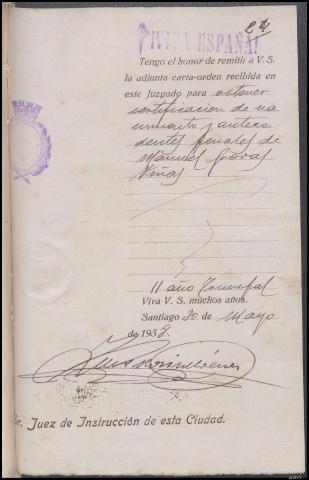 ¡VIVA ESPAÑA!
Tengo el honor de remitir a V. S.
la adjunta carta-orden recibida en
este Juzgado para obtener
certificacion de na
cimiento y antece
dentes penales de
Manuel
Viñas
II año Triunfal
Viva V. S. muchos años.
Santiago 30 de Mayo
de 1938.
Sr. Juez de Instrucción de esta Ciudad.